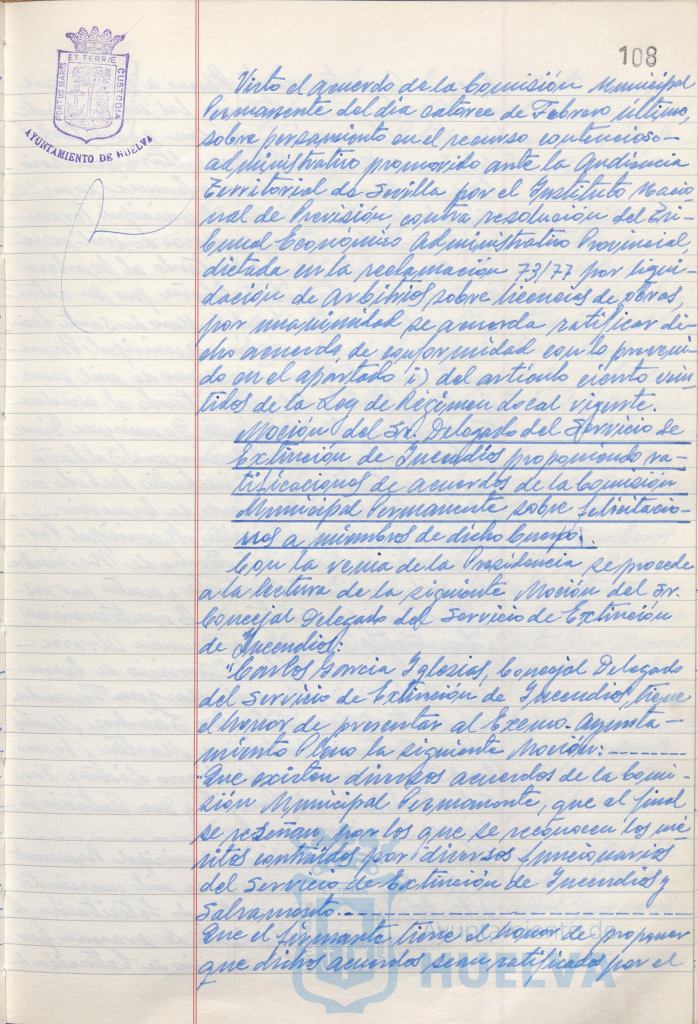 108
PORTUS MARIS
ET TERRÆ
CUSTODIA
AYUNTAMIENTO DE HUELVA
Visto el acuerdo de la Comisión Municipal
Permanente del día catorce de Febrero último,
sobre personamiento en el recurso contencioso-
administrativo promovido ante la Audiencia
Territorial de Sevilla por el Instituto Nacio
nal de Previsión contra resolución del Tri-
bunal Económico Administrativo Provincial,
dictada en la reclamación 73/77 por liqui-
dación de arbitrios sobre licencias de obras,
por unanimidad se acuerda ratificar di
cho acuerdo, de conformidad con lo preveni
do en el apartado i) del artículo ciento vein
tidos de la Ley de Régimen Local vigente.
Moción del Sr. Delegado del Servicio de
Extinción de Incendios proponiendo ra-
tificaciones de acuerdos de la Comisión
Municipal Permanente sobre felicitacio-
nes a miembros de dicho Cuerpo.
Con la venia de la Presidencia se procede
a la lectura de la siguiente Moción del Sr.
Concejal Delegado del Servicio de Extinción
de Incendios:
"Carlos García Iglesias, Concejal Delegado
del Servicio de Extinción de Incendios, tiene
el honor de presentar al Excmo. Ayunta-
miento Pleno la siguiente Moción:
"Que existen diversos acuerdos de la Comi-
sión Municipal Permanente, que al final
se reseñan, por los que se reconocen los mé
ritos contraídos por diversos funcionarios
del Servicio de Extinción de Incendios y
Salvamento.
Que el firmante tiene el honor de proponer
que dichos acuerdos sean ratificados por el
Ayuntamiento de
HUELVA